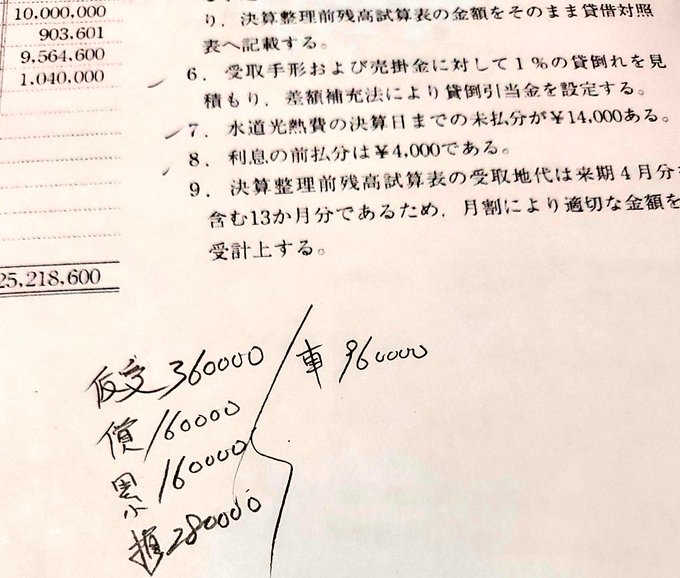 10,000,000
903,601
9,564,600
1,040,000
25,218,600
り、決算整理前残高試算表の金額をそのまま貸借対照
表へ記載する。
6．受取手形および売掛金に対して1％の貸倒れを見
積もり、差額補充法により貸倒引当金を設定する。
7．水道光熱費の決算日までの未払分が￥14,000ある。
8．利息の前払分は￥4,000である。
9．決算整理前残高試算表の受取地代は来期4月分
含む13か月分であるため，月割により適切な金額を
受計上する。
360000 車 960000
160000
累 160000
損 280000